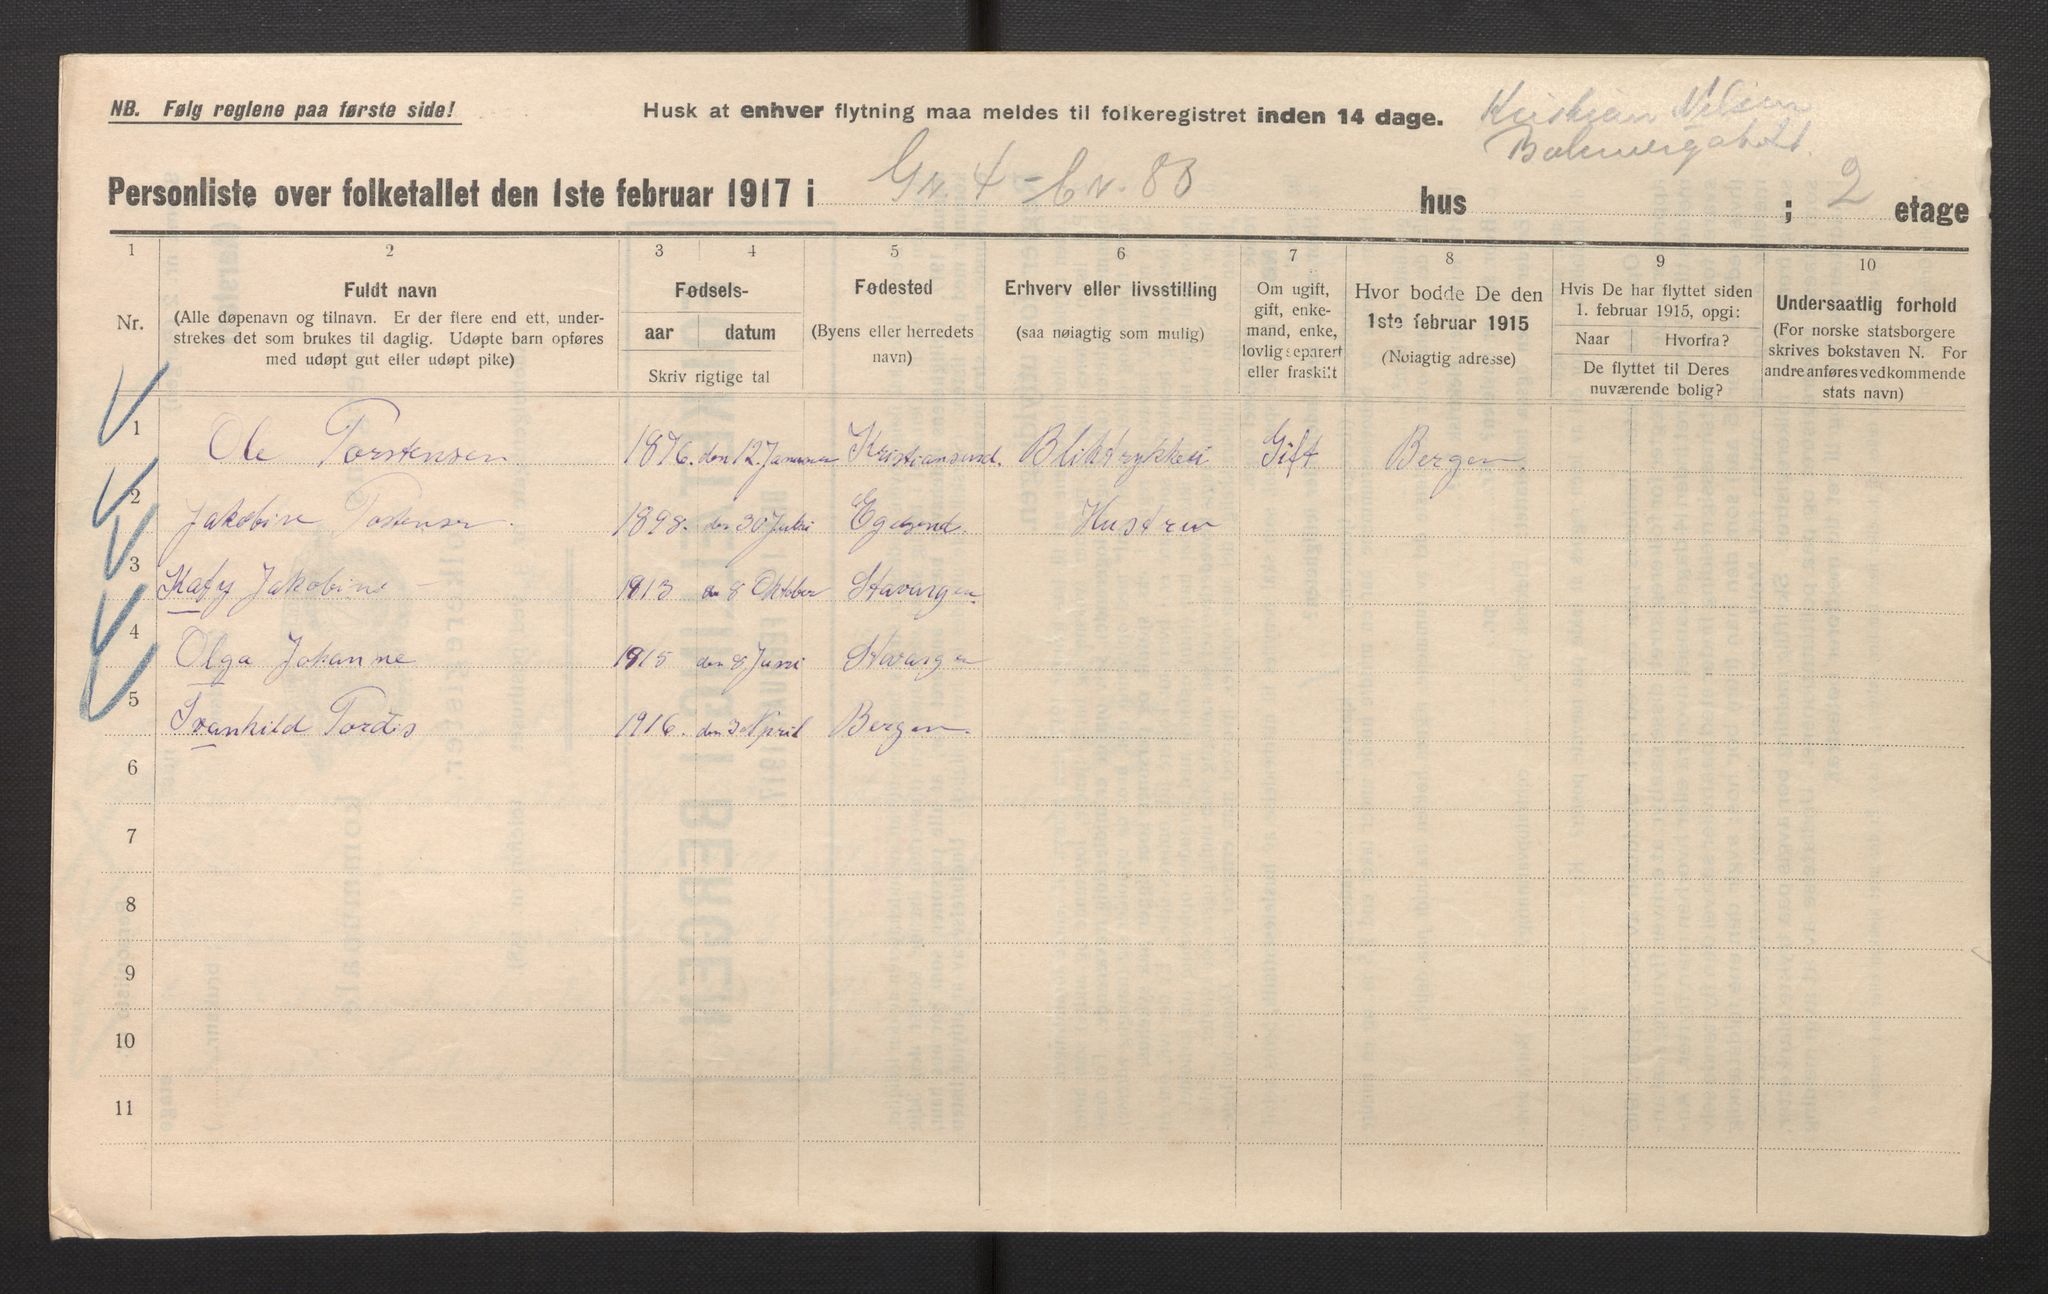 NB. Følg reglene paa første side!
Husk at enhver flytning maa meldes til folkeregistret inden 14 dage.
Kristian Nilsen
Personliste over folketallet den 1ste februar 1917 i Gr. 4 - br. 83 hus ; 2 etage
1 2 3 4 5 6 7 8 9 10
Nr.
Fuldt navn
(Alle døpenavn og tilnavn. Er der flere end ett, under-
strekes det som brukes til daglig. Udøpte barn opføres
med udøpt gut eller udøpt pike)
Fødsels-
aar datum
Skriv rigtige tal
Fødested
(Byens eller herredets
navn)
Erhverv eller livsstilling
(saa nøiagtig som mulig)
Om ugift,
gift, enke-
mand, enke,
lovlig separert
eller fraskilt
Hvor bodde De den
1ste februar 1915
(Nøiagtig adresse)
Hvis De har flyttet siden
1. februar 1915, opgi:
Naar Hvorfra?
De flyttet til Deres
nuværende bolig?
Undersaatlig forhold
(For norske statsborgere
skrives bokstaven N. For
andre anføres vedkommende
stats navn)
1 Ole Torstensen 1876. den 12. Januar Kristiansund. Bliktrykkeri Gift Bergen.
2 Jakobine Tostensen. 1898. den 30 Juli Egesund. Hustru
3 Jakobine 1913 8 Oktober Stavangen
4 Olga Johanne 1915 den 8 Juni Stavangen
5 Tordis 1916. den 3 April Bergen.
6
7
8
9
10
11